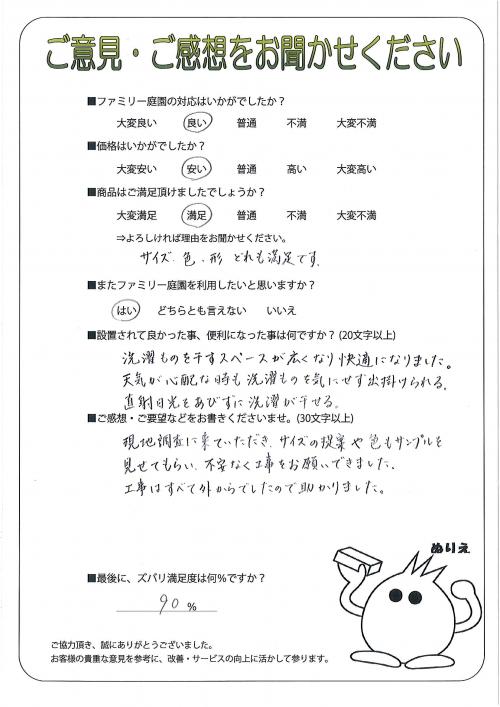 ご意見・ご感想をお聞かせください
■ファミリー庭園の対応はいかがでしたか？
大変良い 良い 普通 不満 大変不満
■価格はいかがでしたか？
大変安い 安い 普通 高い 大変高い
■商品はご満足頂けましたでしょうか？
大変満足 満足 普通 不満 大変不満
⇒よろしければ理由をお聞かせください。
サイズ、色、形 どれも満足です。
■またファミリー庭園を利用したいと思いますか？
はい どちらとも言えない いいえ
■設置されて良かった事、便利になった事は何ですか？(20文字以上)
洗濯ものを干すスペースが広くなり快適になりました。
天気が心配な時も洗濯ものを気にせず出掛けられる。
直射日光をあびずに洗濯が干せる。
■ご感想・ご要望などをお書きくださいませ。(30文字以上)
現地調査に来ていただき、サイズの提案や色もサンプルを
見せてもらい、不安なく工事をお願いできました。
工事はすべて外からでしたので助かりました。
ぬりえ
■最後に、ズバリ満足度は何％ですか？
90 %
ご協力頂き、誠にありがとうございました。
お客様の貴重な意見を参考に、改善・サービスの向上に活かして参ります。